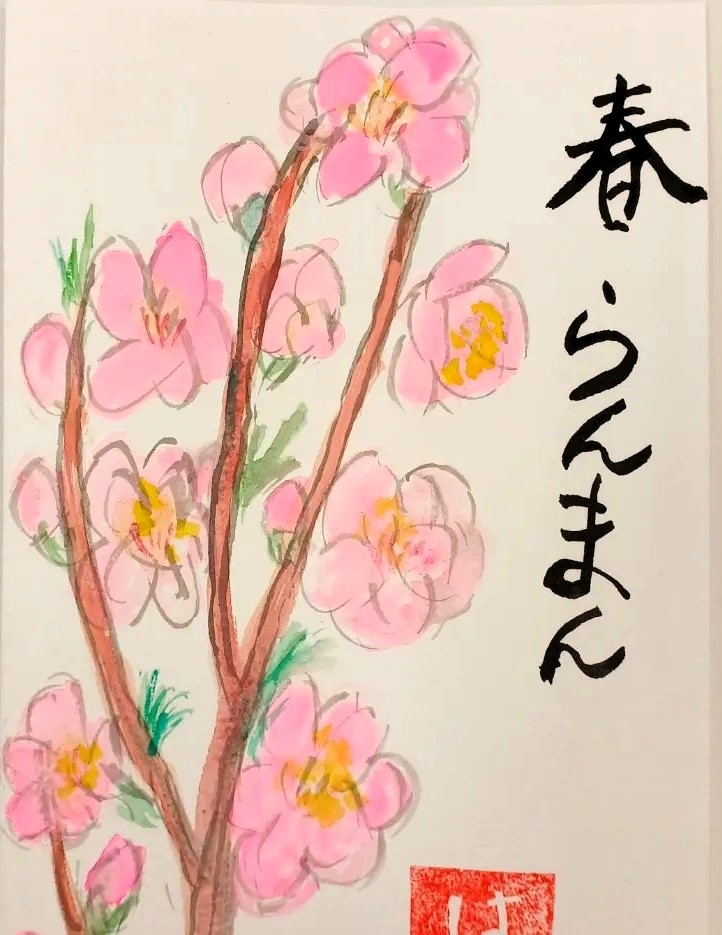 春らんまん
は